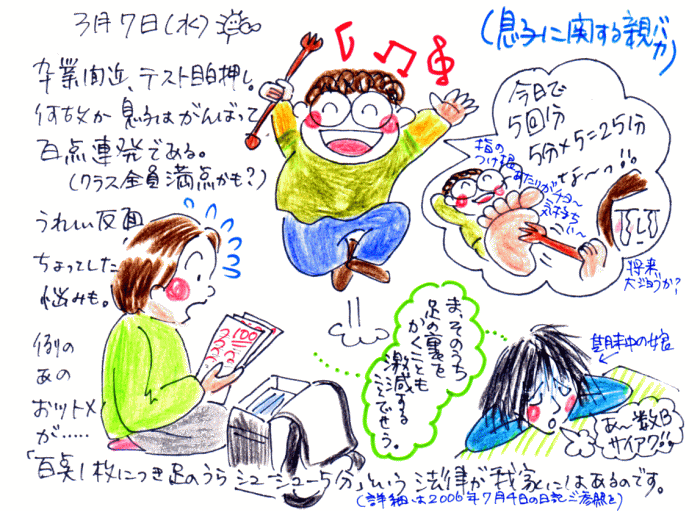 3月7日(水)
(息子に関する親バカ)
卒業間近、テスト目白押し。
何故か息子はがんばって
百点連発である。
(クラス全員満点かも?)
うれしい反面
ちょっとした
悩みも。
例の
あの
おツトメ
が……
今日で
5回分
5分×5=25分
な〜っ!!
指の
つけ根
あたりがチョ〜
気持ち
い〜
将来
大丈夫か?
100
ま、そのうち
足の裏を
かくことも
激減する
ことでせう。
期末中の娘
あ〜数B
サイアク!!
「百点1枚につき足のうらシューシュー5分」という法律が我家にはあるのです。
(詳細は2006年7月4日の日記ご参照を)